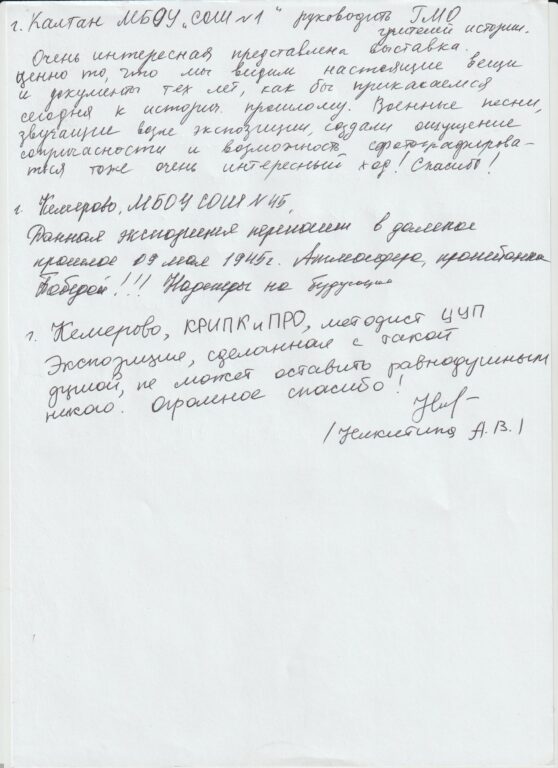 г. Калтан МБОУ „СОШ №1“ руководитель ГМО
учителей истории.
Очень интересная представлена выставка.
Ценно то, что мы видим настоящие вещи
и документы тех лет, как бы прикасаемся
сегодня к истории, прошлому. Военные песни,
звучащие возле экспозиции, создали ощущение
сопричастности и возможность сфотографирова-
ться тоже очень интересный ход! Спасибо!
г. Кемерово, МБОУ СОШ №45,
Данная экспозиция переносит в далекое
прошлое 09 мая 1945г. Атмосфера,
Победой!!! Надежды на будущее
г. Кемерово, КРИПКиПРО, методист ЦУП
Экспозиция, сделанная с такой
душой, не может оставить равнодушным
никого. Огромное спасибо!
/Никитина А.В./